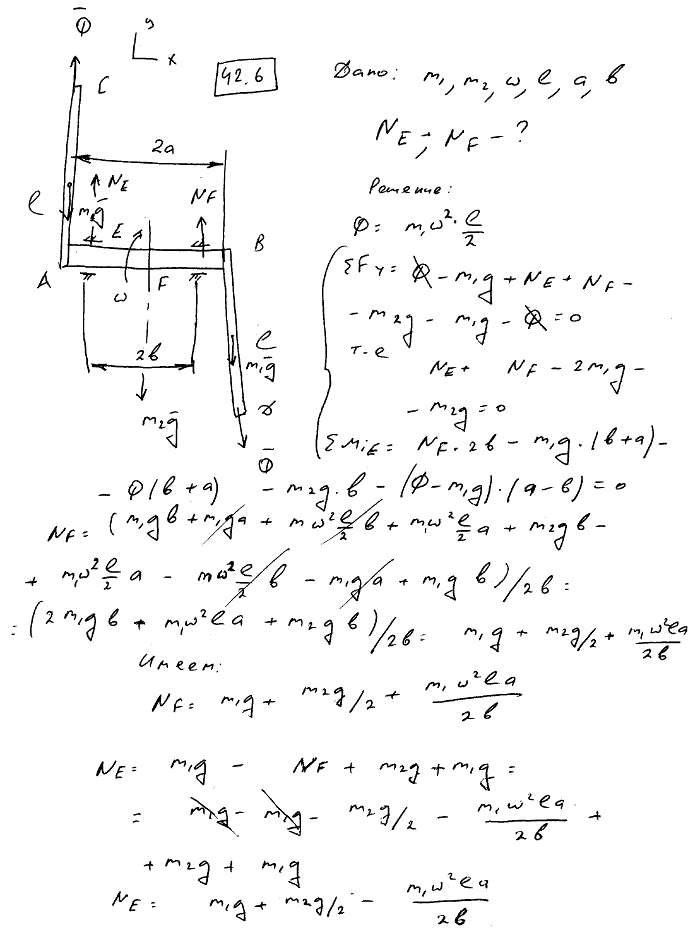 Φ̄
y
x
C
42.6
Дано: m₁, m₂, ω, l, a, b
N_E; N_F - ?
2a
N_E
N_F
l
m₁ḡ
E
B
A
ω
F
Решение:
Φ = m₁ω²·l/2
ΣF_y = Φ - m₁g + N_E + N_F -
- m₂g - m₁g - Φ = 0
т.е
N_E + N_F - 2m₁g -
- m₂g = 0
2b
l
m₁ḡ
m₂ḡ
D
Φ̄
ΣM_iE = N_F·2b - m₁g·(b+a) -
- Φ(b+a) - m₂g·b - (Φ-m₁g)·(a-b) = 0
N_F = (m₁gb + m₁ga + mω²l/2 b + m₁ω²l/2 a + m₂gb -
+ m₁ω²l/2 a - mω²l/2 b - m₁ga + m₁gb)/2b =
= (2m₁gb + m₁ω²la + m₂gb)/2b = m₁g + m₂g/2 + m₁ω²la/2b
Имеем:
N_F = m₁g + m₂g/2 + m₁ω²la/2b
N_E = m₁g - N_F + m₂g + m₁g =
= m₁g - m₁g - m₂g/2 - m₁ω²la/2b +
+ m₂g + m₁g
N_E = m₁g + m₂g/2 - m₁ω²la/2b